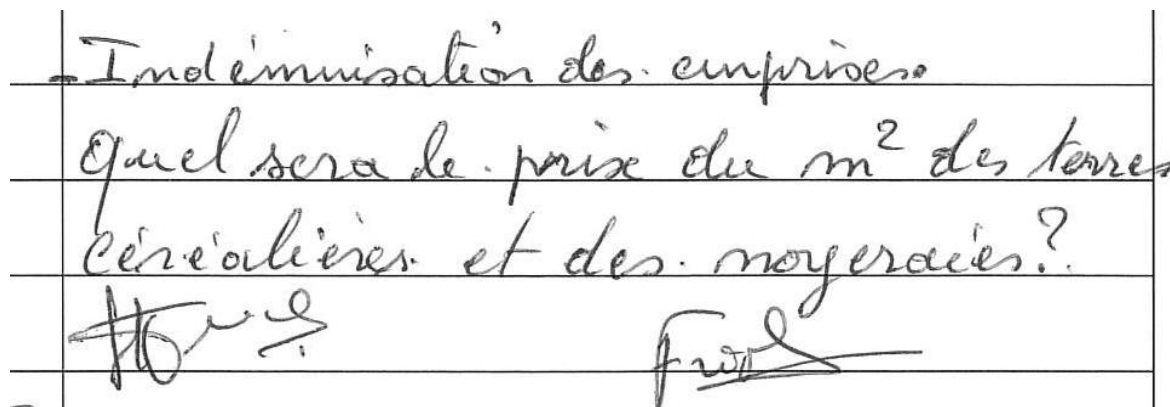 - Indémnisation des emprises.
Quel sera le prix du m² des terres
céréalières et des noyeraies?